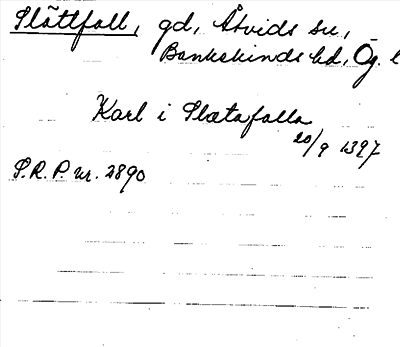 Slättfall, gd, Åtvids sn,
Bankekinds hd, Ög. l
Karl i Slætafalla
20/9 1397
S.R.P. nr. 2890